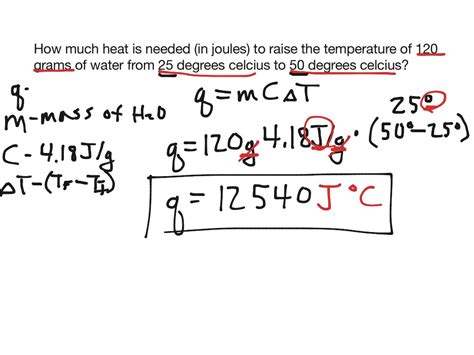 How much heat is needed (in joules) to raise the temperature of 120
grams of water from 25 degrees celcius to 50 degrees celcius?
q-
m-mass of H2O
C - 4.18J/g
ΔT-(TF-TI)
q=mCΔT
25°
q=120g 4.18J/g·(50°-25°)
q = 12540 J °C